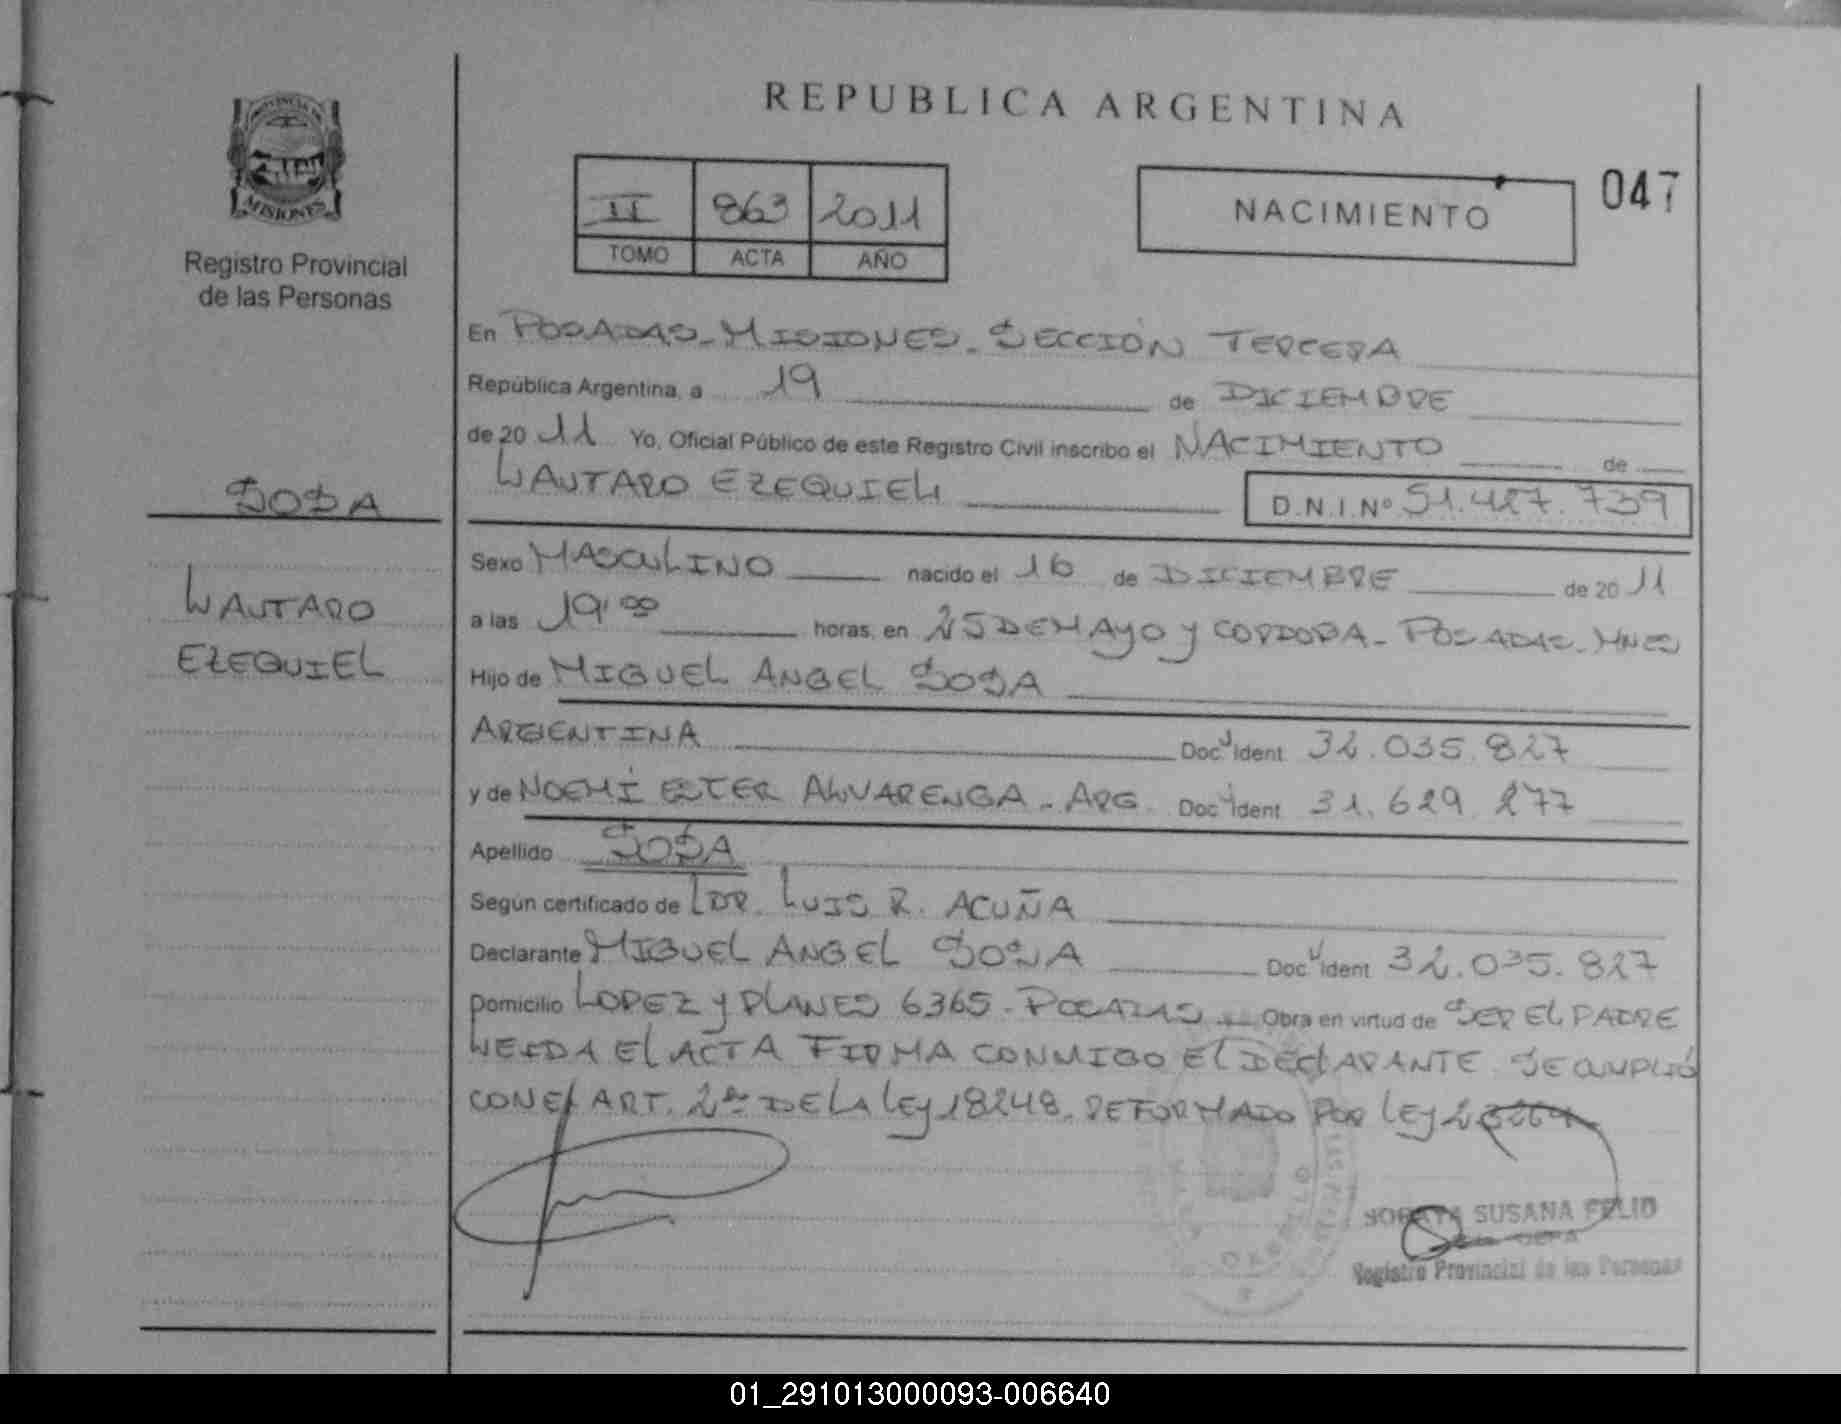 REPUBLICA ARGENTINA
PROVINCIA DE
MISIONES
Registro Provincial
de las Personas
II 863 2011
TOMO ACTA AÑO
NACIMIENTO
047
En POSADAS-MISIONES-SECCIÓN TERCERA
República Argentina, a 19 de DICIEMBRE
de 2011 Yo, Oficial Público de este Registro Civil inscribo el NACIMIENTO de
LAUTARO EZEQUIEL D.N.I.Nº 51.427.739
SOSA
LAUTARO
EZEQUIEL
Sexo MASCULINO nacido el 16 de DICIEMBRE de 2011
a las 19:00 horas, en 25 DE MAYO y CORDOBA - POSADAS - MNES
Hijo de MIGUEL ANGEL SOSA
ARGENTINA Doc Ident 32.035.827
y de NOEMÍ ESTER ALVARENGA - ARG. Doc Ident 31.629.277
Apellido SOSA
Según certificado de DR. LUIS R. ACUÑA
Declarante MIGUEL ANGEL SOSA Doc Ident 32.035.827
Domicilio LOPEZ y PLANES 6365 - POSADAS Obra en virtud de SER EL PADRE
LEIDA El ACTA FIRMA CONMIGO El DEClARANTE. SE CUMPLIÓ
CON El ART. 2do DE LA LEy 18248. REFORMADO POR LEy
SORAYA SUSANA FELIO
JEFA
Registro Provincial de las Personas
01_291013000093-006640